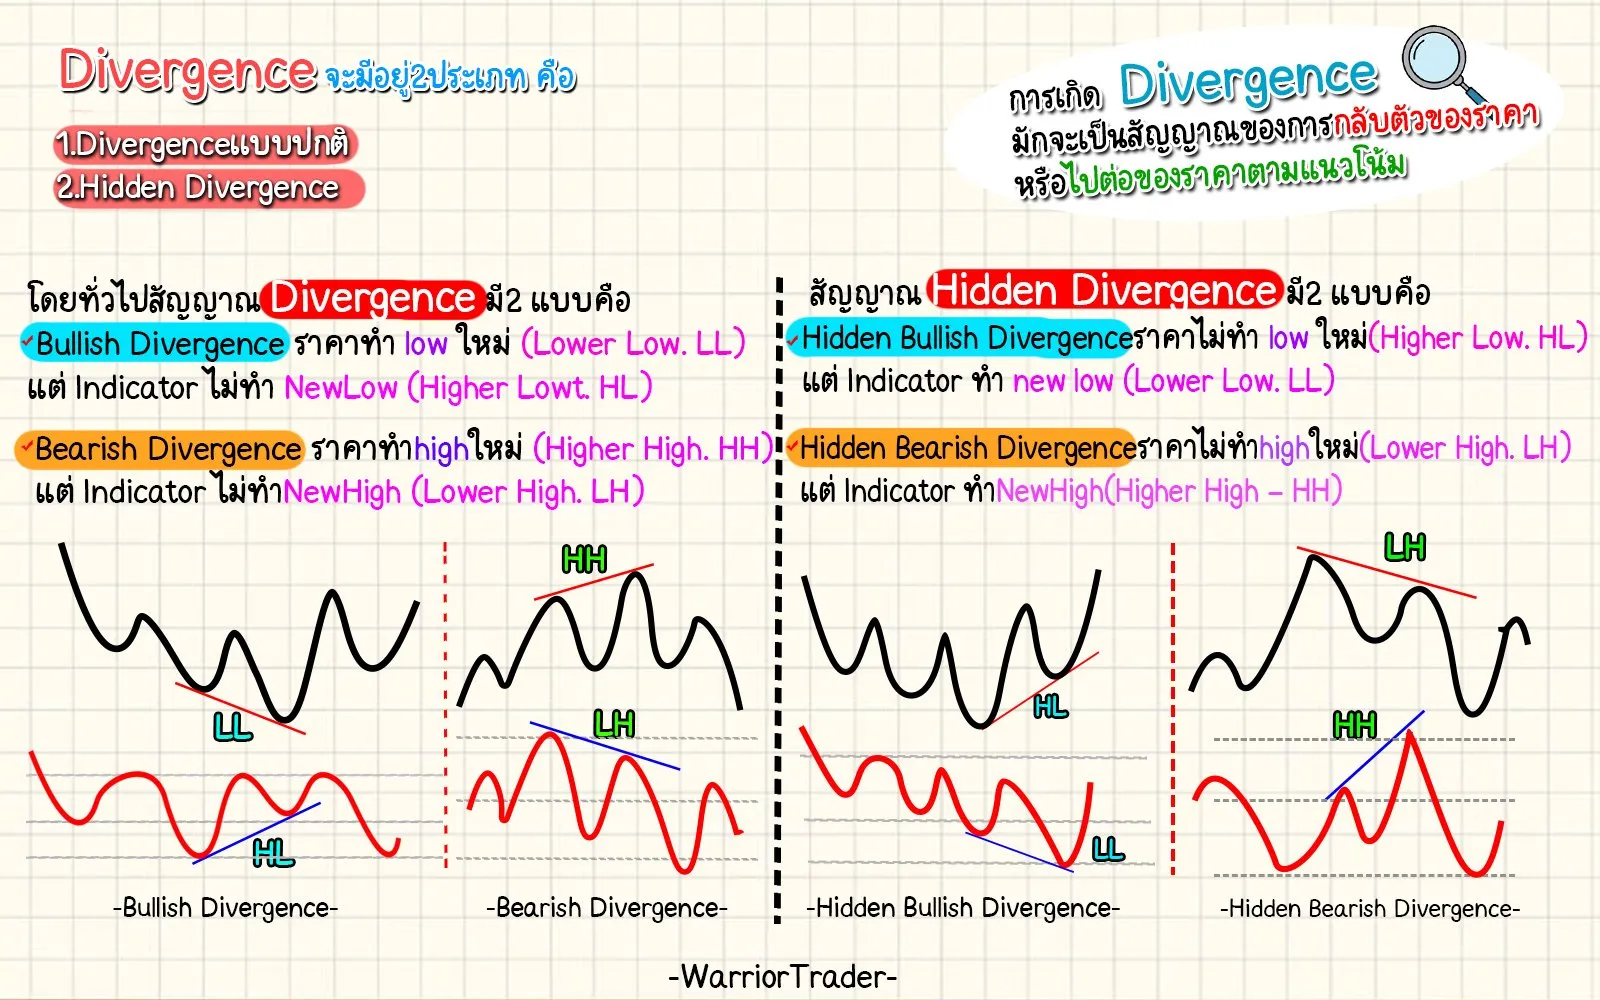 Divergence จะมีอยู่2ประเภท คือ
1.Divergenceแบบปกติ
2.Hidden Divergence
การเกิด Divergence
มักจะเป็นสัญญาณของการกลับตัวของราคา
หรือไปต่อของราคาตามแนวโน้ม
โดยทั่วไปสัญญาณ Divergence มี2 แบบคือ
Bullish Divergence ราคาทำ low ใหม่ (Lower Low. LL)
แต่ Indicator ไม่ทำ NewLow (Higher Lowt. HL)
Bearish Divergence ราคาทำhighใหม่ (Higher High. HH)
แต่ Indicator ไม่ทำNewHigh (Lower High. LH)
สัญญาณ Hidden Divergence มี2 แบบคือ
Hidden Bullish Divergenceราคาไม่ทำ low ใหม่(Higher Low. HL)
แต่ Indicator ทำ new low (Lower Low. LL)
Hidden Bearish Divergenceราคาไม่ทำhighใหม่(Lower High. LH)
แต่ Indicator ทำNewHigh(Higher High – HH)
LL
HL
-Bullish Divergence-
HH
LH
-Bearish Divergence-
HL
LL
-Hidden Bullish Divergence-
LH
HH
-Hidden Bearish Divergence-
-WarriorTrader-